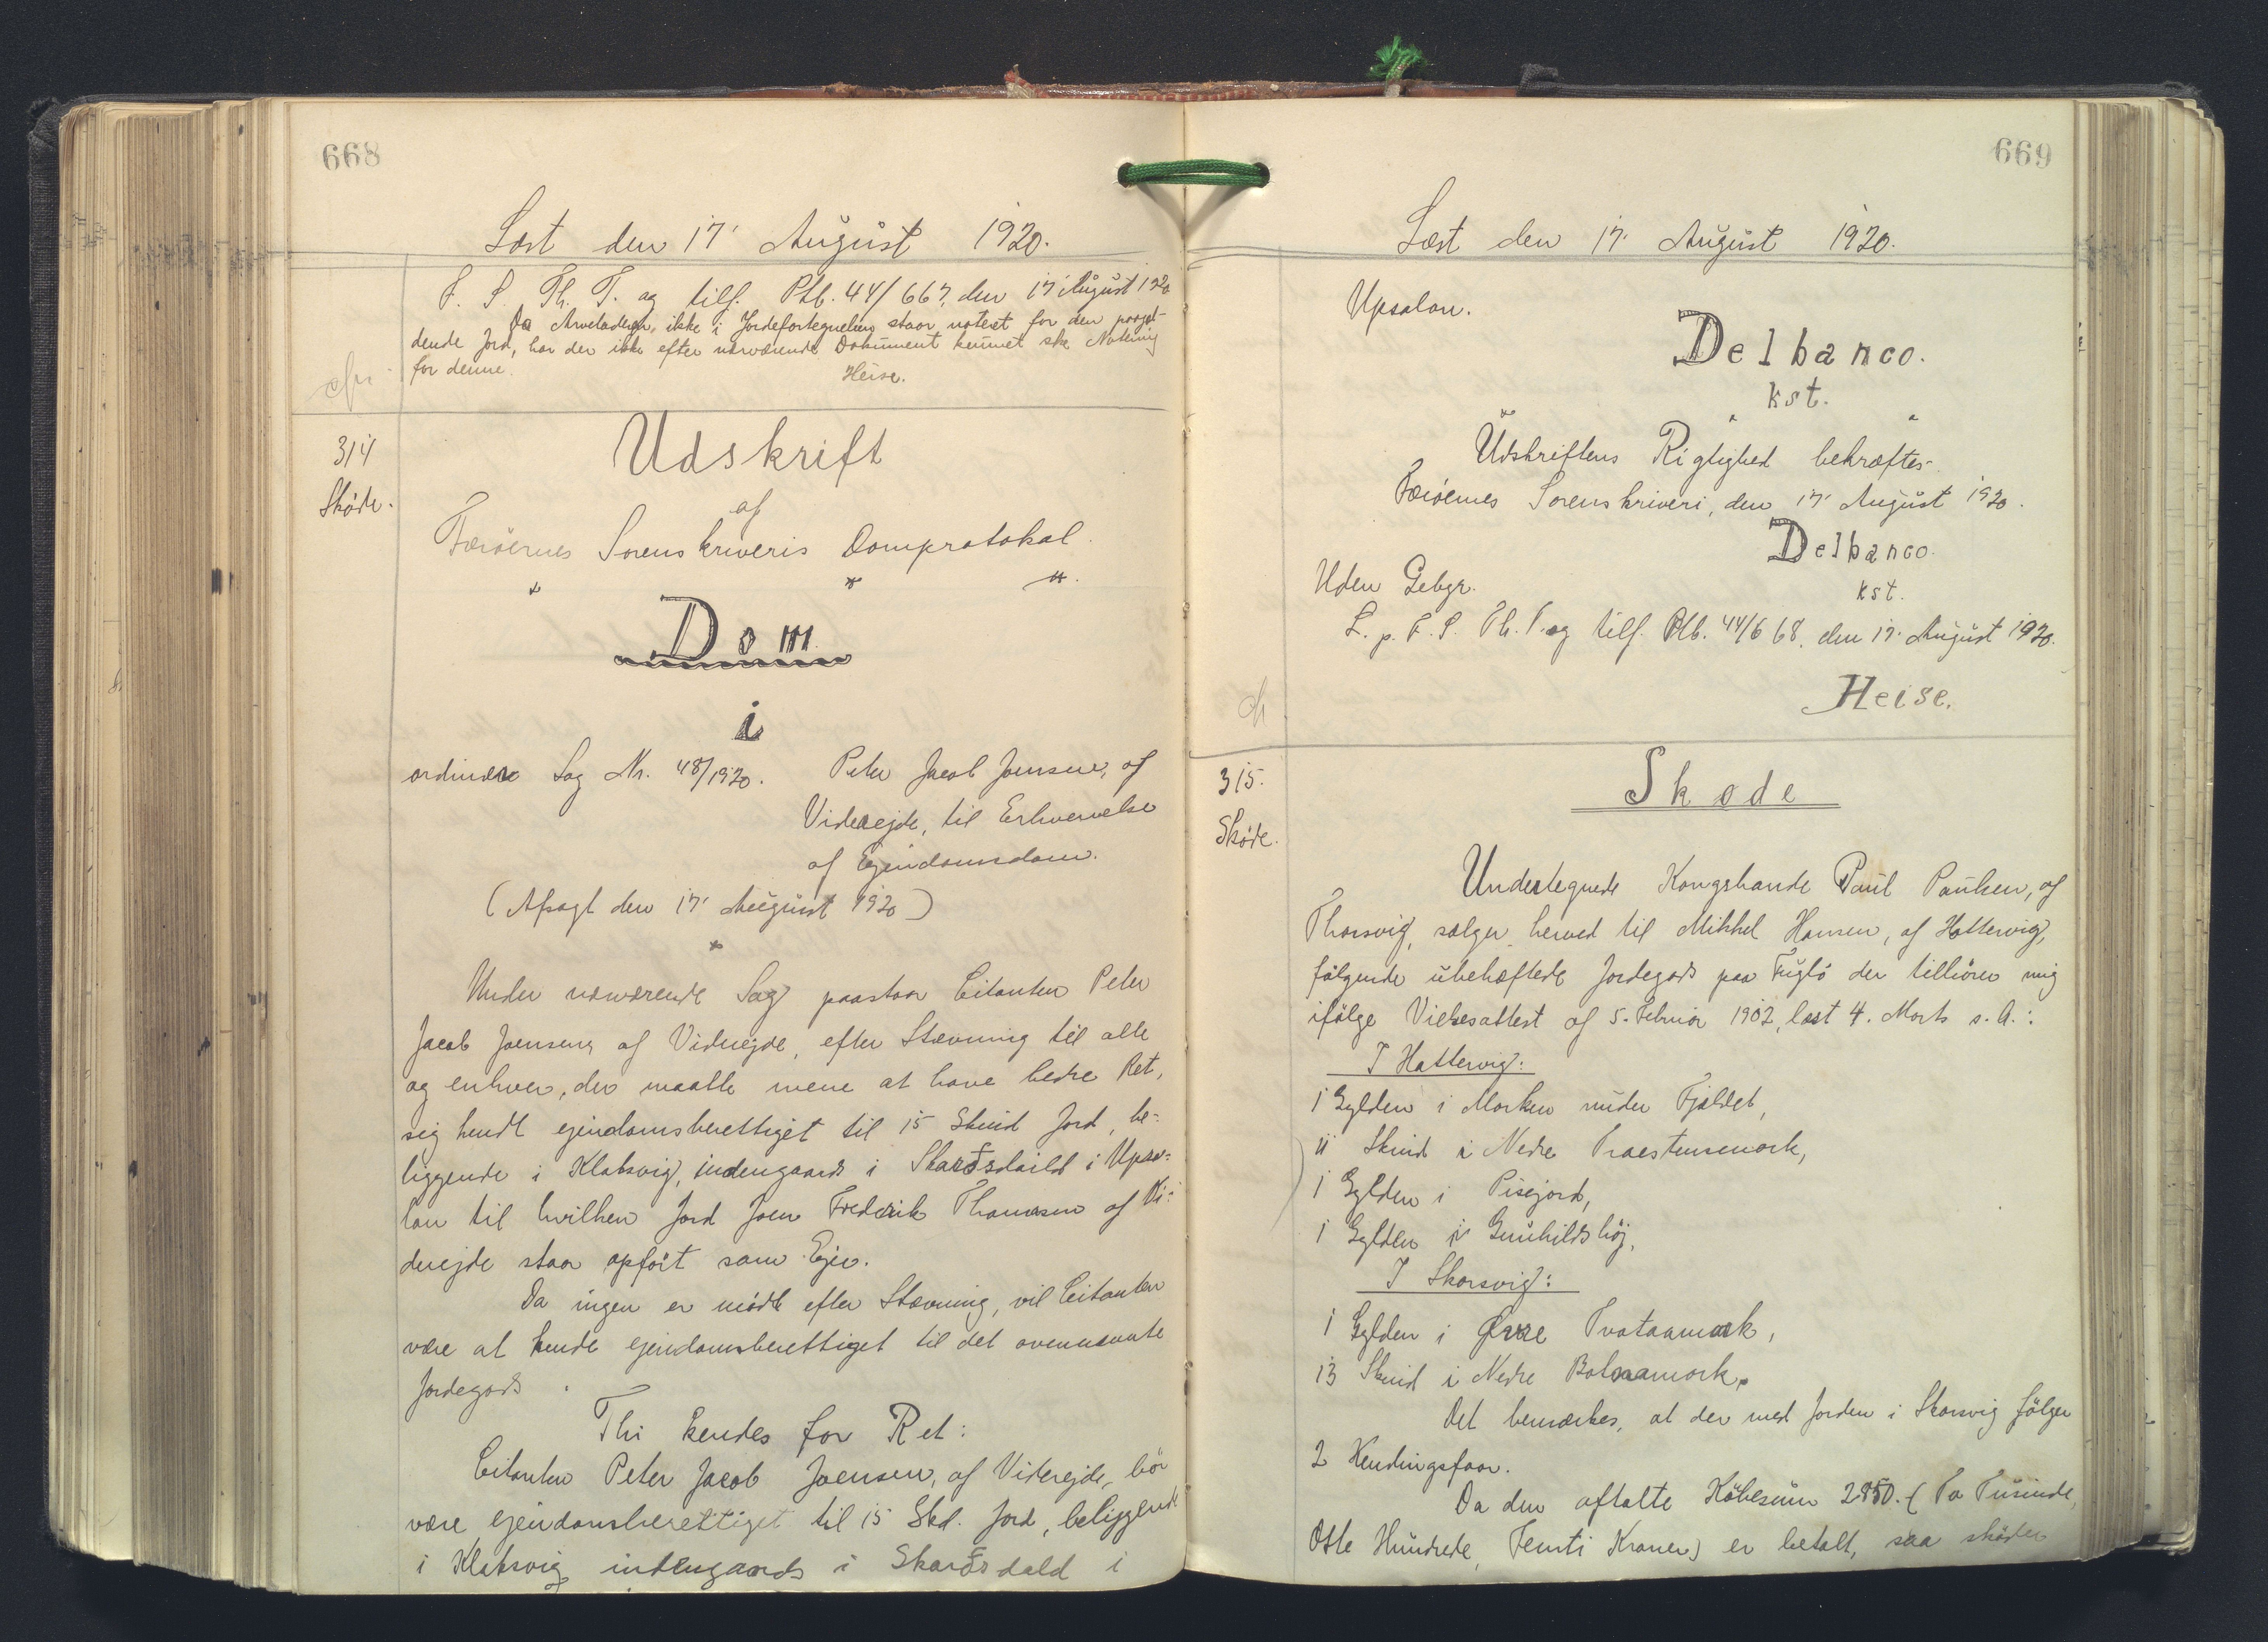 668
Læst den 17' August 1920.
F. S. Th. T. og tilf. Ptb. 44/667, den 17 August 1920
Da Arveladeren ikke i Jordefortegnelsen staar noteret for den paagæl-
dende Jord, har der ikke efter nærværende Dokument kunnet ske Notering
for denne.
Heise.
314
Skøde.
Udskrift
af
Færöernes Sorenskriveris Domprotokol.
Dom
i
ordinær Sag Nr. 48/1920. Peter Jacob Joensen, af
Viderejde, til Erhvervelse
af Ejendomsdom.
(Afsagt den 17' August 1920)
Under nærværende Sag paastaar Citanten Peter
Jacob Joensen, af Viderejde, efter Stævning til alle
og enhver, der maatte mene at have bedre Ret,
sig kendt ejendomsberettiget til 15 Skind Jord, be-
liggende i Klaksvig, indengaards i Skarðsdaild i Upsa-
lon til hvilken Jord Joen Frederik Thomasen af Vi-
derejde staar opfört som Ejer.
Da ingen er mödt efter Stævning, vil Citanten
være at kende ejendomsberettiget til det ovennævnte
Jordegods.
Thi kendes for Ret:
Citanten Peter Jacob Joensen, af Viderejde, bör
være ejendomsberettiget til 15 Skd. Jord, beliggende
i Klaksvig indengaards i Skarðsdald i
669
Læst den 17' August 1920.
Upsalon.
Delbanco.
kst.
Udskriftens Rigtighed bekræftes.
Færöernes Sorenskriveri, den 17' August 1920.
Delbanco.
kst.
Uden Gebyr.
L. p. F. S. Th. T. og tilf. Ptb. 44/668, den 17' August 1920.
Heise.
315.
Skøde.
Skøde
Undertegnede Kongsbonde Paul Paulsen, af
Thorsvig, sælger herved til Mikkel Hansen, af Hattervig,
fölgende ubehæftede Jordegods paa Fuglö der tilhörer mig
ifölge Vielsesattest af 5. Februar 1902, læst 4. Marts s. A.:
I Hattervig:
1 Gylden i Morken under Fjeldet,
11 Skind i Nedre Praestensmork,
1 Gylden i Pisejord,
1 Gylden i Gunhildshöj,
I Skorsvig:
1 Gylden i Øvre Tvataamork,
13 Skind i Nedre Bolnamork.
Det bemærkes, at der med Jorden i Skorsvig fölger
2 Kendingsfaar.
Da den aftalte Köbesum 2850.- (To Tusinde,
Otte Hundrede, Femti Kroner) er betalt, saa skøder